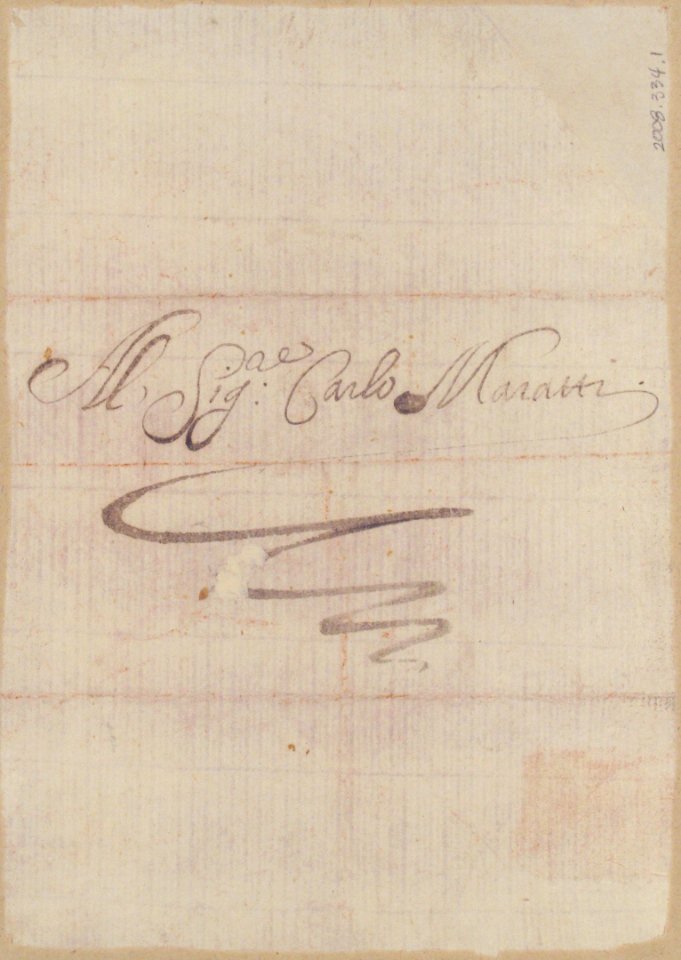 2008.334.1
Al Sig:ae Carlo Maratti.